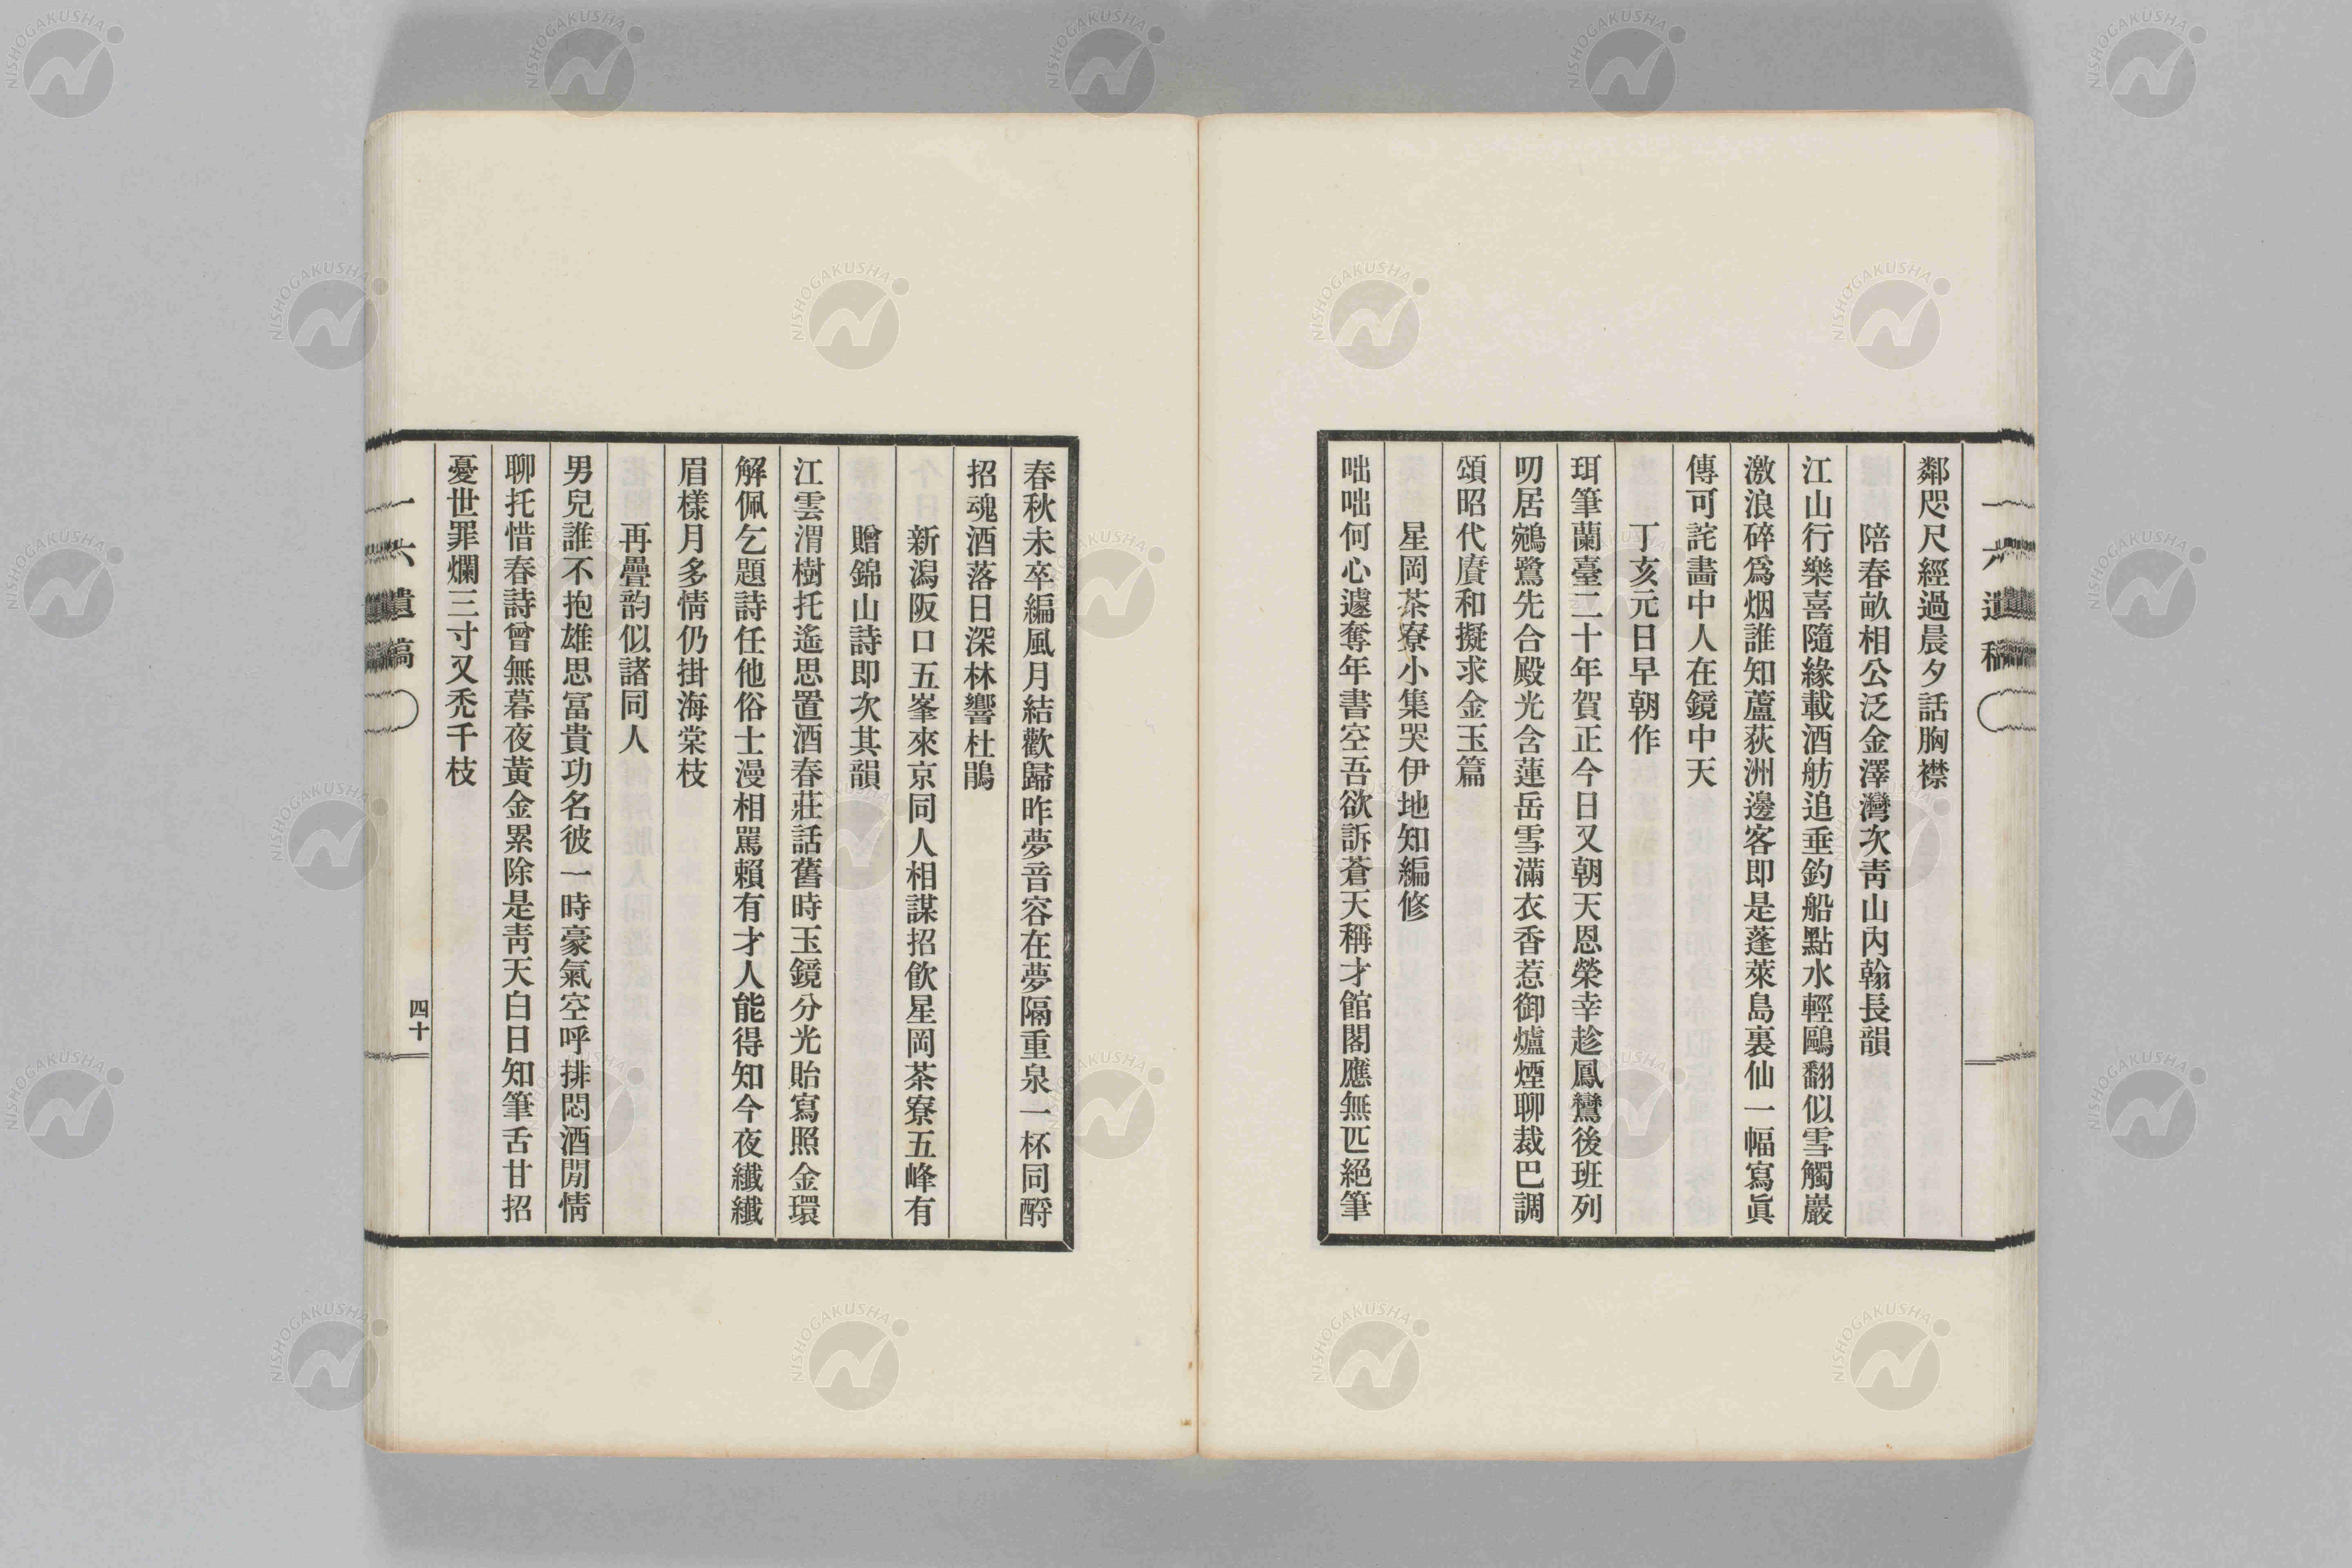 一六遺稿
鄰咫尺經過晨夕話胸襟
陪春畝相公泛金澤灣次靑山內翰長韻
江山行樂喜隨緣載酒舫追垂釣船點水輕鷗翻似雪觸巖
激浪碎爲烟誰知蘆荻洲邊客即是蓬萊島裏仙一幅寫眞
傳可詫畵中人在鏡中天
丁亥元日早朝作
珥筆蘭臺二十年賀正今日又朝天恩榮幸趁鳳鸞後班列
叨居鵷鷺先合殿光含蓮岳雪滿衣香惹御爐煙聊裁巴調
頌昭代賡和擬求金玉篇
星岡茶寮小集哭伊地知編修
咄咄何心遽奪年書空吾欲訴蒼天稱才館閣應無匹絕筆
春秋未卒編風月結歡歸昨夢音容在夢隔重泉一杯同酹
招魂酒落日深林響杜鵑
新潟阪口五峯來京同人相謀招飮星岡茶寮五峰有
贈錦山詩即次其韻
江雲渭樹托遙思置酒春莊話舊時玉鏡分光貽寫照金環
解佩乞題詩任他俗士漫相罵賴有才人能得知今夜纖纖
眉樣月多情仍掛海棠枝
再疊韵似諸同人
男兒誰不抱雄思富貴功名彼一時豪氣空呼排悶酒閒情
聊托惜春詩曾無暮夜黃金累除是靑天白日知筆舌甘招
憂世罪爛三寸又禿千枝
一六遺稿
四十
NISHOGAKUSHA